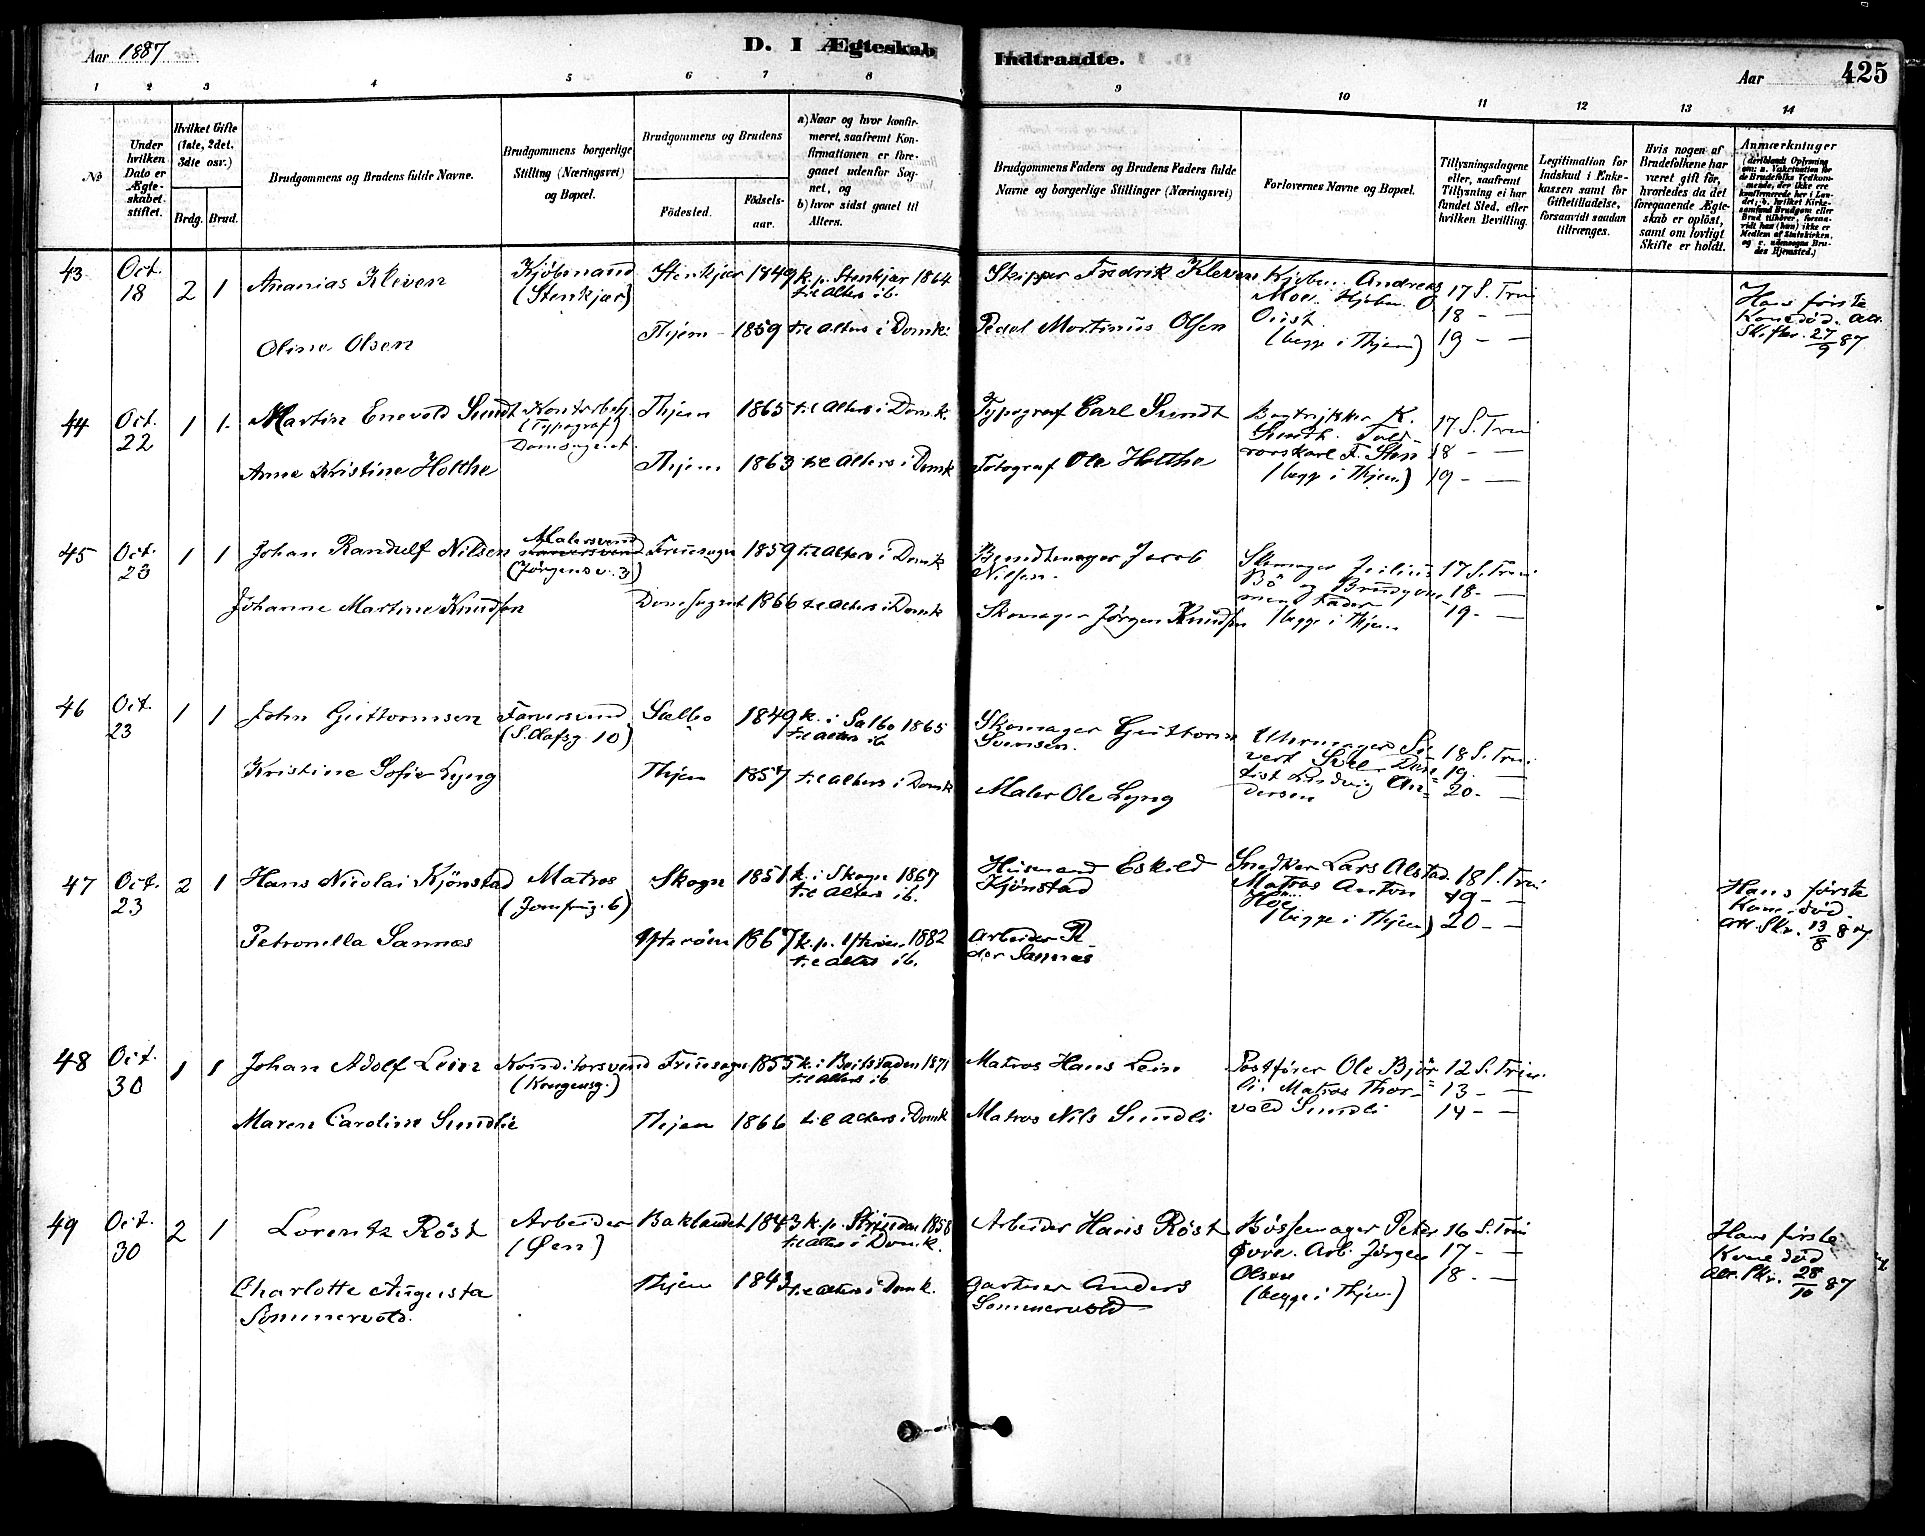 Aar 1887
D. I Ægteskab
Indtraadte.
Aar
425
1 2 3 4 5 6 7 8 9 10 11 12 13 14
No
Under hvilken Dato er Ægteskabet stiftet.
Hvilket Gifte (1ste, 2det, 3die osv.)
Brdg. Brud.
Brudgommens og Brudens fulde Navne.
Brudgommens borgerlige Stilling (Næringsvei) og Bopæl.
Brudgommens og Brudens
Födested.
Födsels-aar.
a) Naar og hvor konfirmeret, saafremt Konfirmationen er foregaaet udenfor Sognet, og
b) hvor sidst gaaet til Alters.
Brudgommens Faders og Brudens Faders fulde Navne og borgerlige Stillinger (Næringsvei)
Forlovernes Navne og Bopæl.
Tillysningsdagene eller, saafremt Tillysning ei har fundet Sted, efter hvilken Bevilling.
Legitimation for Indskud i Enkekassen samt for Giftetilladelse, forsaavidt saadan tiltrænges.
Hvis nogen af Brudefolkene har været gift før, hvorledes da det foregaaende Ægteskab er oplöst, samt om lovligt Skifte er holdt.
Anmærkninger
43 Oct. 18 2 1 Ananias Kleven Kjöbmand (Stenkjær) Stenkjær 1849 k. p. Stenkjær 1864 til Alters ib. Skipper Fredrik Kleven Kjöbm. Andreas Moe. Kjöbm. O 17 S. Trin
Quist. (begge i Thjem) 18 — — 19 — —
Hans förste Kone död. Att. Skifter. 27/9 87
Oline Olsen Thjem 1859 til Alters i Domk. Pedel Martinus Olsen
44 Oct. 22 1 1 Martin Enevold Sundt Kontorbetj. (Typograf) Domsognet Thjem 1865 til Alters i Domk. Typograf Carl Sundt Bogtrykker K. Sundt. Told-
rorskarl F. Sten (begge i Thjem) 17 S. Trin 18 — — 19 — —
Anna Kristine Holthe Thjem 1863 til Alters i Domk Fotograf Ole Holthe
45 Oct. 23 1 1 Johan Randulf Nilsen Malersvend (Jörgensv. 3) Fruesogn 1859 til Alters i Domk Bundtmager Jacob Nilsen. Skomager Julius Bö og Brudgom-
mens Fader (begge i Thjem 17 S. Trin 18 — — 19 — —
Johanne Martine Knudsen Domsognet 1866 til Alters i Domk Skomager Jørgen Knudsen
46 Oct. 23 1 1 John Guttormsen Farversvend (S. Olafsg. 10) Sælbo 1849 k. i Salbo 1865 til Alters ib Skomager Guttorm Svensen. Uhrmager Si-
vert Dan-
tist Ludvig An-
dersen 18 S. Trin. 19 — — 20 — —
Kristine Sofie Lyng Thjem 1857 til Alters i Domk Maler Ole Lyng
47 Oct. 23 2 1 Hans Nicolai Kjönstad Matros (Jomfrug. 6) Skogn 1851 k. i Skogn 1867 til Alters ib. Husmand Eskild Kjönstad Snedker Lars Alstad. Matros Anton Höe (begge i Thjem) 18 S. Trin 19 — — 20 — —
Hans förste Kone död. Att. Skr. 13/8 87
Petronella Sannes Ytteröen 1867 k. p. Ytteröen 1882 til Alters ib. Arbeider Pe-
der Sannes
48 Oct. 30 1 1 Johan Adolf Lein Konditorsvend (Kongensg.) Fruesogn 1855 k. i Beitstaden 1871 til Alters ib Matros Hans Lein Postfører Ole Björ-
li. Matros Thor-
vald Sundli 12 S. Trin. 13 — — 14 — —
Maren Caroline Sundlie Thjem 1866 til Alters i Domk Matros Nils Sundli
49 Oct. 30 2 1 Lorentz Röst Arbeider (Øen) Baklandet 1843 k. p. Strinden 1858 til Alters i Domk. Arbeider Hans Röst Bössemager Peter Øvre. Arb. Jörgen Olsen (begge i Thjem) 16 S. Trin 17 — — 18 — —
Hans förste Kone död Att. Skr. 28/10 87
Charlotte Augusta Sommervold. Thjem 1843 til Alters i Domk. Gartner Anders Sommervold